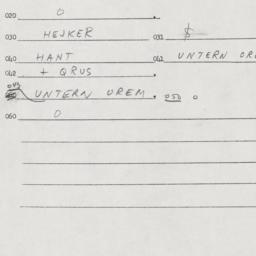 020 0
030 HEJKER 031 $
040 HANT 041 UNTERN ORE
042 + QRUS
043 UNTERN UREM 050 0
060 0